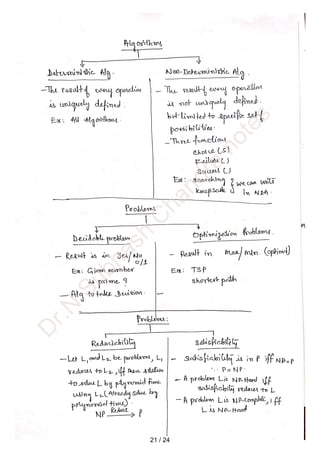 Algorithms
Deterministic Alg.
- The result of every operation
is uniquely defined.
Ex: All Algorithms.
Non-Deterministic Alg.
- The result of every operation
is not uniquely defined
but limited to specific set of
possibilities.
- Three functions
choice (S)
Failure ( )
Success ( )
Ex: searching
knapsack
} we can write
in NDA.
Problems
Decidable problem
- Result is in Yes/No
0/1
Ex: Given number
is prime ?
- Alg to take decision.
Optimization Problems.
- Result in max/min. (optimal)
Ex: TSP
shortest path
Problems:
Reducibility
- Let L₁ and L₂ be problems, L₁
reduces to L₂, iff there solution
to solve L₁ by polynomial time
using L₂ (Already solve by
polynomial time).
NP Reduce → P
Satisfiability
- Satisfiability is in P iff NP=P
∴ P = NP
- A problem L is NP-Hard iff
satisfiability reduces to L
- A problem L is NP-complete, iff
L is NP-Hard
21 / 24